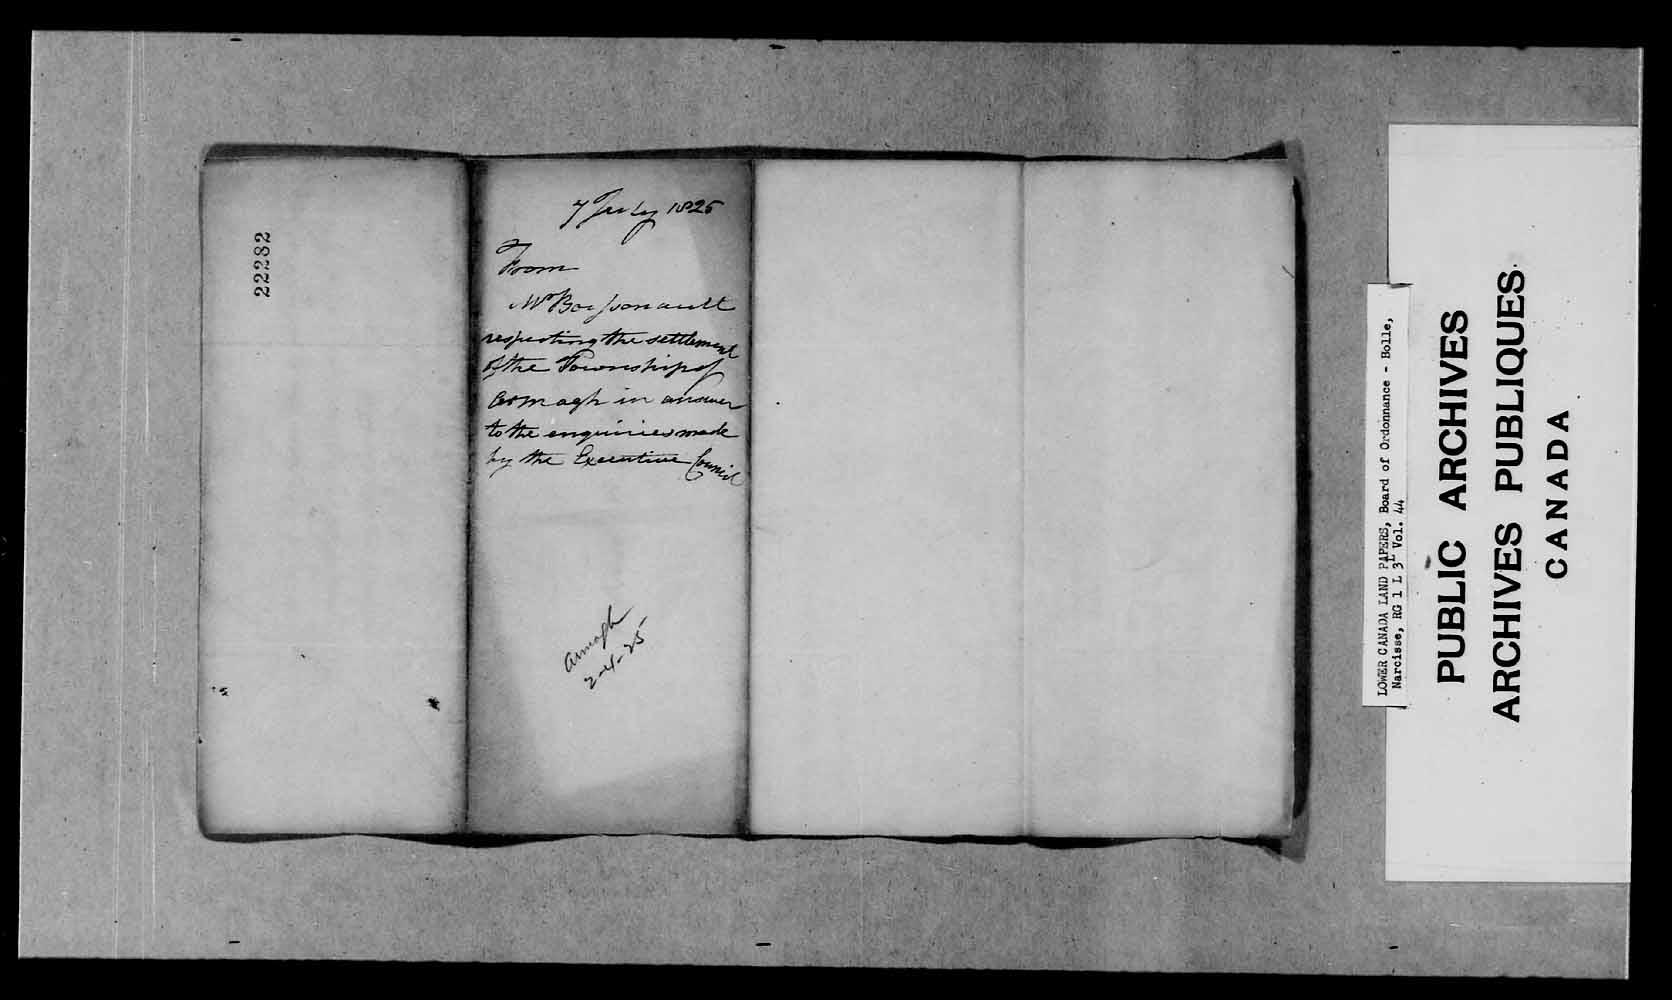 22282
7 July 1825
From
Mr Boissonault
respecting the settlement
of the Township of
Armagh in answer
to the enquiries made
by the Executive Council
Armagh
LOWER CANADA LAND PAPERS, Board of Ordonnance - Bolle,
Narcisse, RG 1 L 3L Vol. 44
PUBLIC ARCHIVES
ARCHIVES PUBLIQUES
CANADA